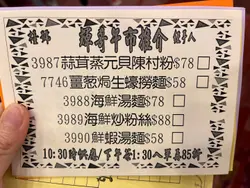 輝哥午市推介
3987蒜茸蒸元貝陳村粉$78
7746薑葱焗生蠔撈麵$58
3988海鮮湯麵$78
3989海鮮炒粉絲$88
3990鮮蝦湯麵$58
10:30時供應/下午茶1:30入單其85折